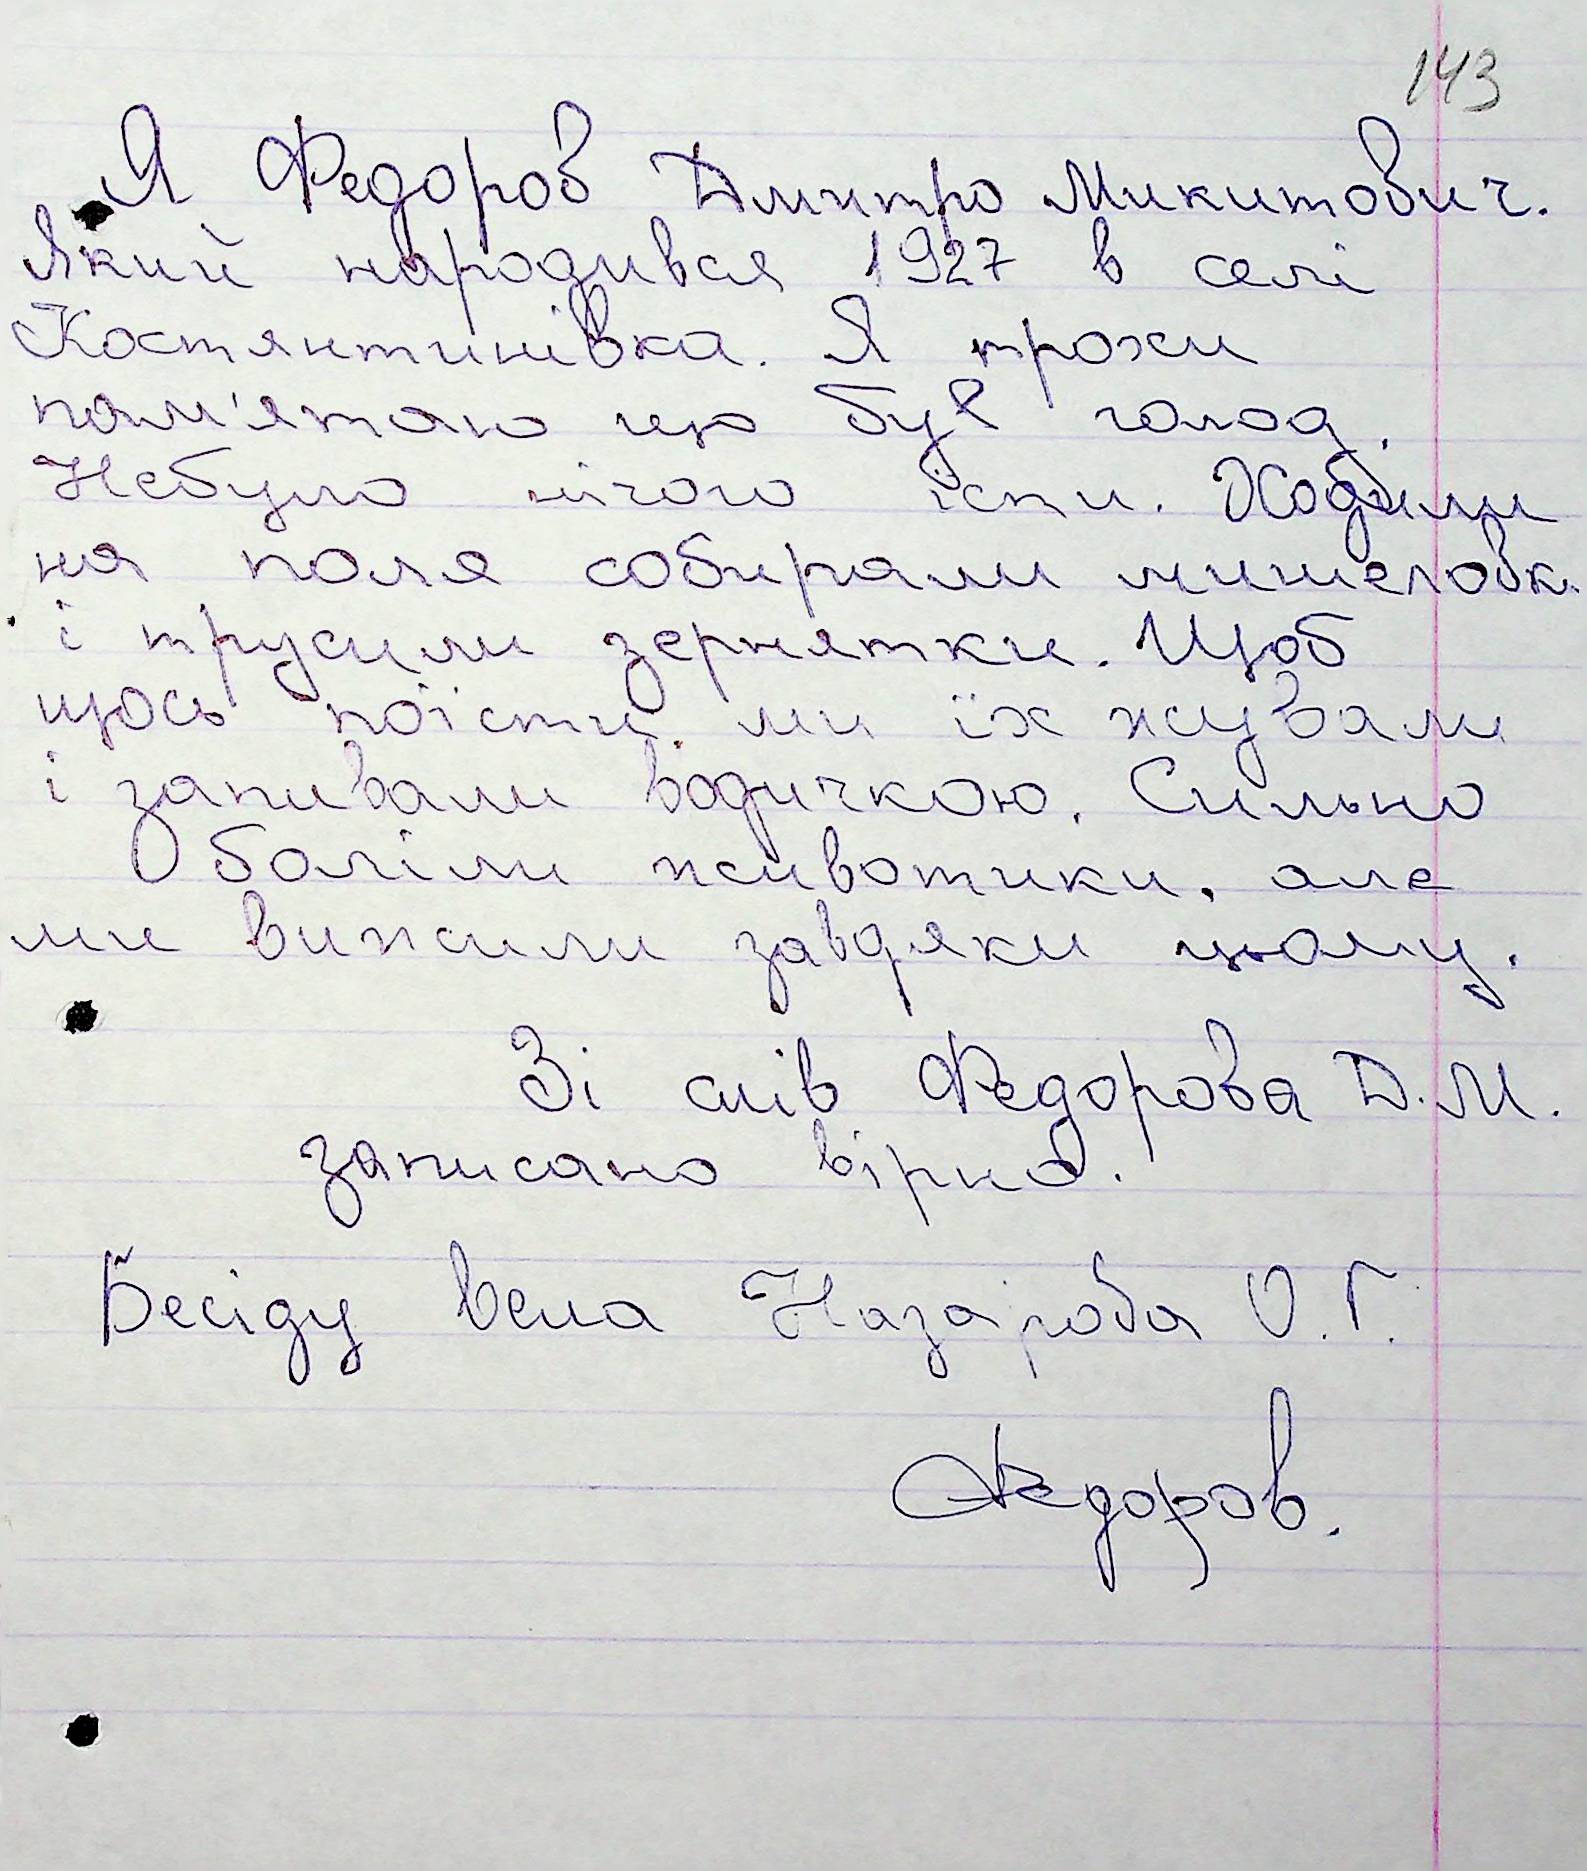 143
Я Федоров Дмитро Микитович.
Який народився 1927 в селі
Костянтинівка. Я трохи
пам'ятаю що був голод.
Небуло нічого їсти. Ходили
на поля собирали мишеловк.
і трусили зернятки. Щоб
щось поїсти ми їх жували
і запивали водичкою. Сильно
О боліли животики, але
ми вижили завдяки цьому.
Зі слів Федорова Д.М.
записано вірно.
Бесіду вела Назарова О.Г.
Федоров.